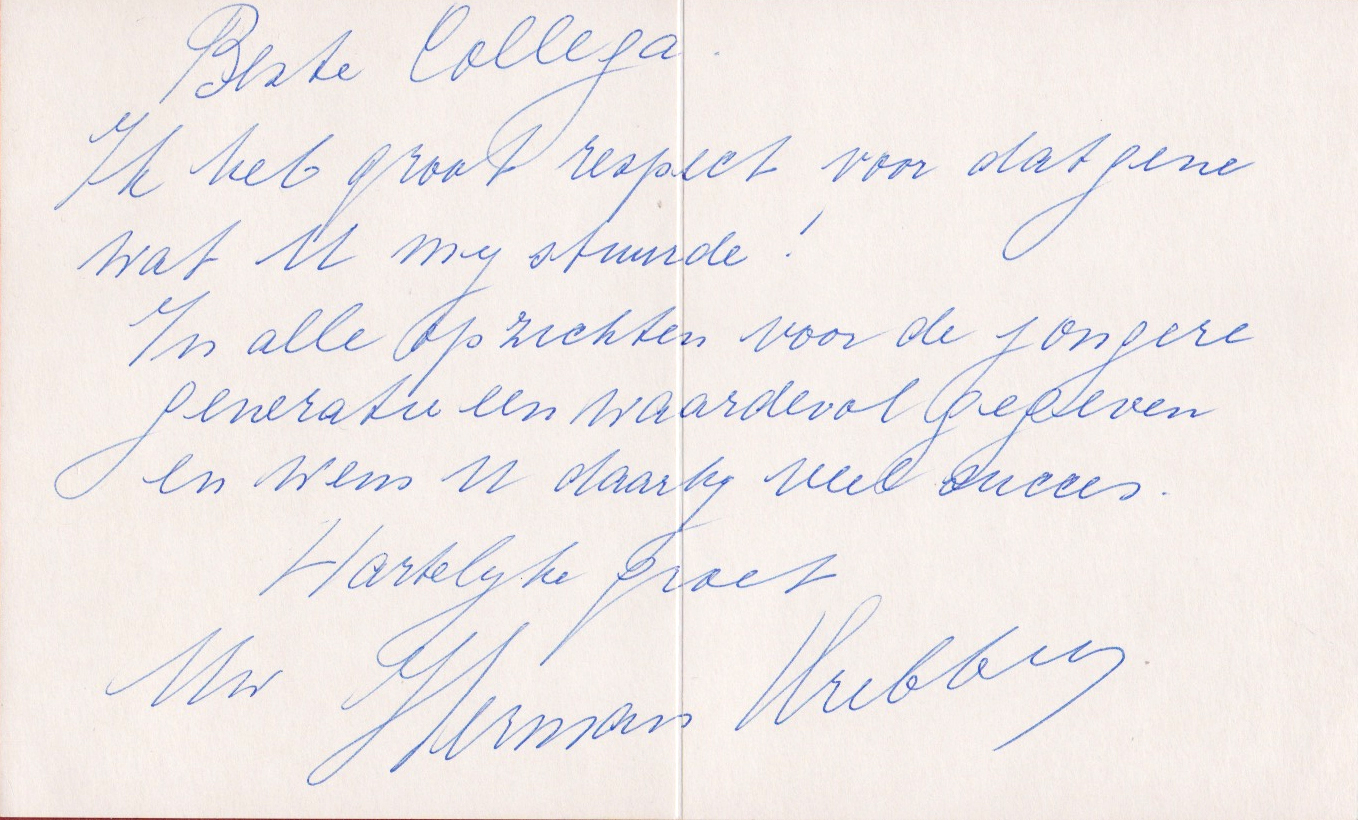 Beste Collega.
Ik heb groot respect voor datgene
wat U my stuurde!
In alle opzichten voor de jongere
generatie een waardevol gegeven
en wens U daarby veel succes.
Hartelyke groet
Uw Herman Krebbers